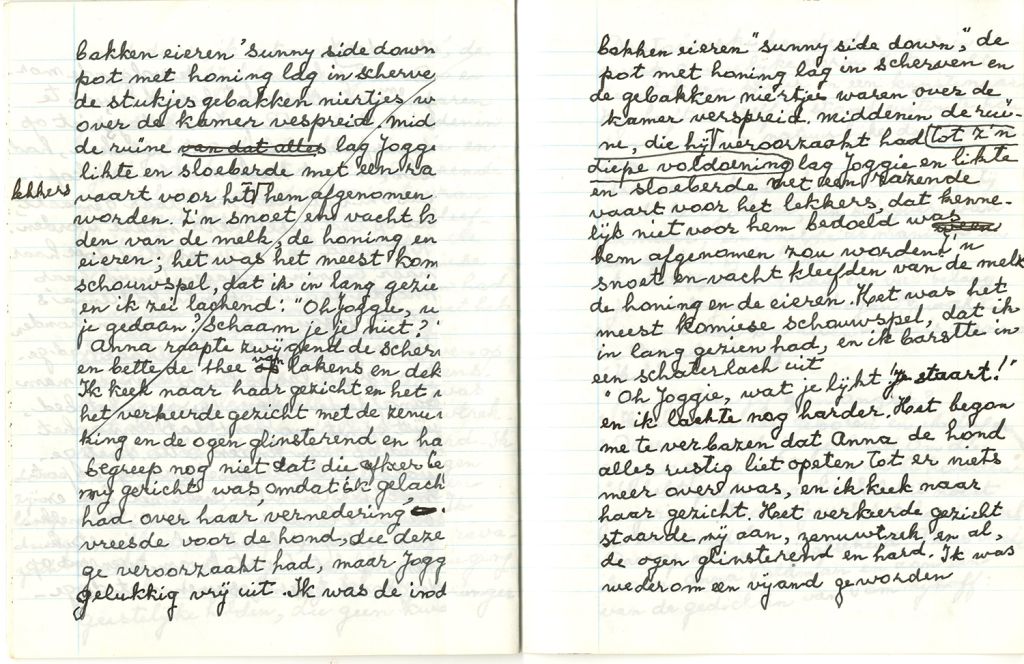 bakken eieren "sunny side down
pot met honing lag in scherve
de stukjes gebakken niertjes w
over de kamer vespreid, mid
de ruïne van dat alles lag Joggi
likte en sloeberde met een ra
lekkers
vaart voor het hem afgenomen
worden. Z'n snoet en vacht k
den van de melk, de honing en
eieren; het was het meest kom
schouwspel, dat ik in lang gezie
en ik zei lachend: "Oh Joggie, w
je gedaan? Schaam je je niet?"
Anna raapte zwijgend de scher
en bette de thee van lakens en dek
Ik keek naar haar gezicht en het
het verkeerde gezicht met de zenu
king en de ogen glinsterend en ha
begreep nog niet dat die afkeer te
my gericht was omdat ik gelach
had over haar vernedering.
vreesde voor de hond, die deze
ge veroorzaakt had, maar Jogg
gelukkig vrij uit. Ik was de
bakken eieren "sunny side down", de
pot met honing lag in scherven en
de gebakken niertjes waren over de
kamer verspreid. middenin de rui-
ne, die hij veroorzaakt had tot z'n
diepe voldoening lag Joggie en likte
en sloeberde met een razende
vaart voor het lekkers, dat kenne-
lijk niet voor hem bedoeld was
hem afgenomen zou worden. Z'n
snoet en vacht kleefden van de melk
de honing en de eieren. Het was het
meest komiese schouwspel, dat ik
in lang gezien had, en ik barstte in
een schaterlach uit
"Oh Joggie, wat je lijkt je staart!"
en ik lachte nog harder. Het begon
me te verbazen dat Anna de hond
alles rustig liet opeten tot er niets
meer over was, en ik keek naar
haar gezicht. Het verkeerde gezicht
staarde mij aan, zenuwtrek, en al,
de ogen glinsterend en hard. Ik was
wederom een vijand geworden